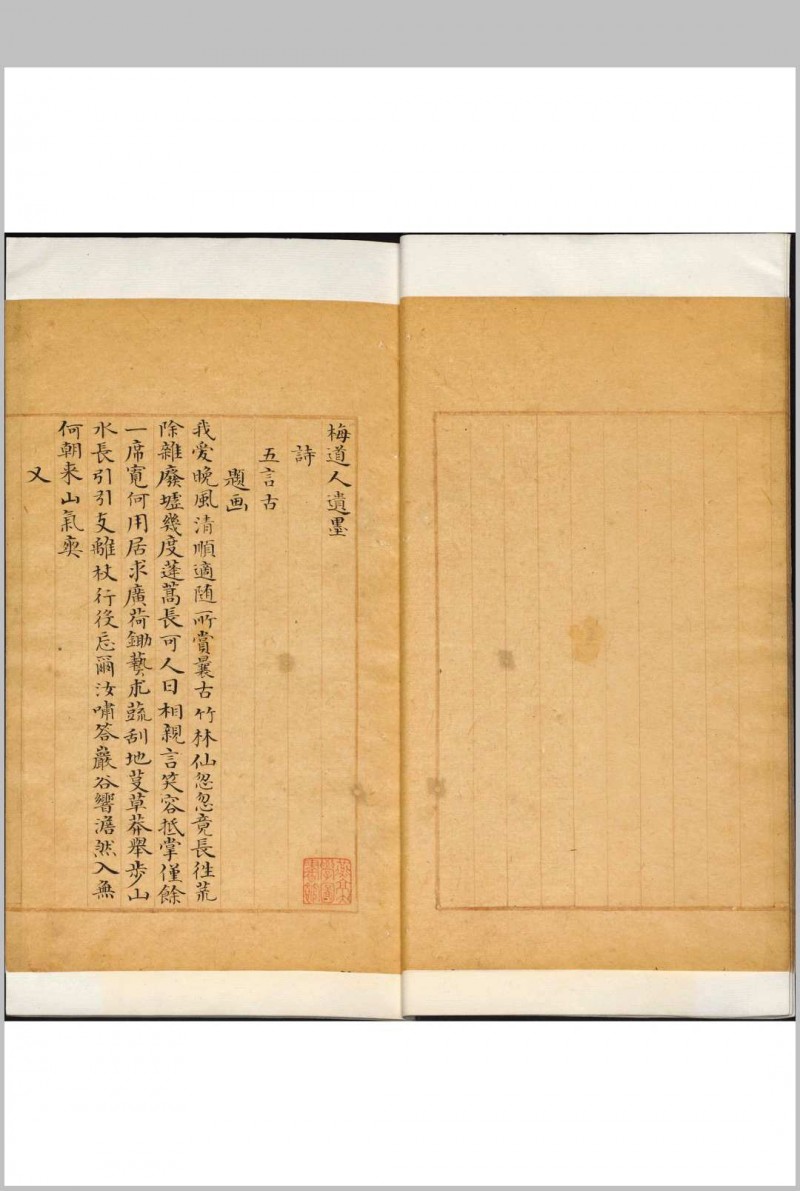 梅道人遺墨
詩
五言古
題画
我愛晚風清順適随所賞曩古竹林仙忽忽竟長徃荒
除雜廢墟幾度蓬蒿長可人日相親言笑容抵掌僅餘
一席寛何用居求廣荷鋤藝朮蔬刮地芟草莽舉步山
水長引引支離杖行後忘爾汝嘯答巖谷響澹然入無
何朝来山氣爽
又